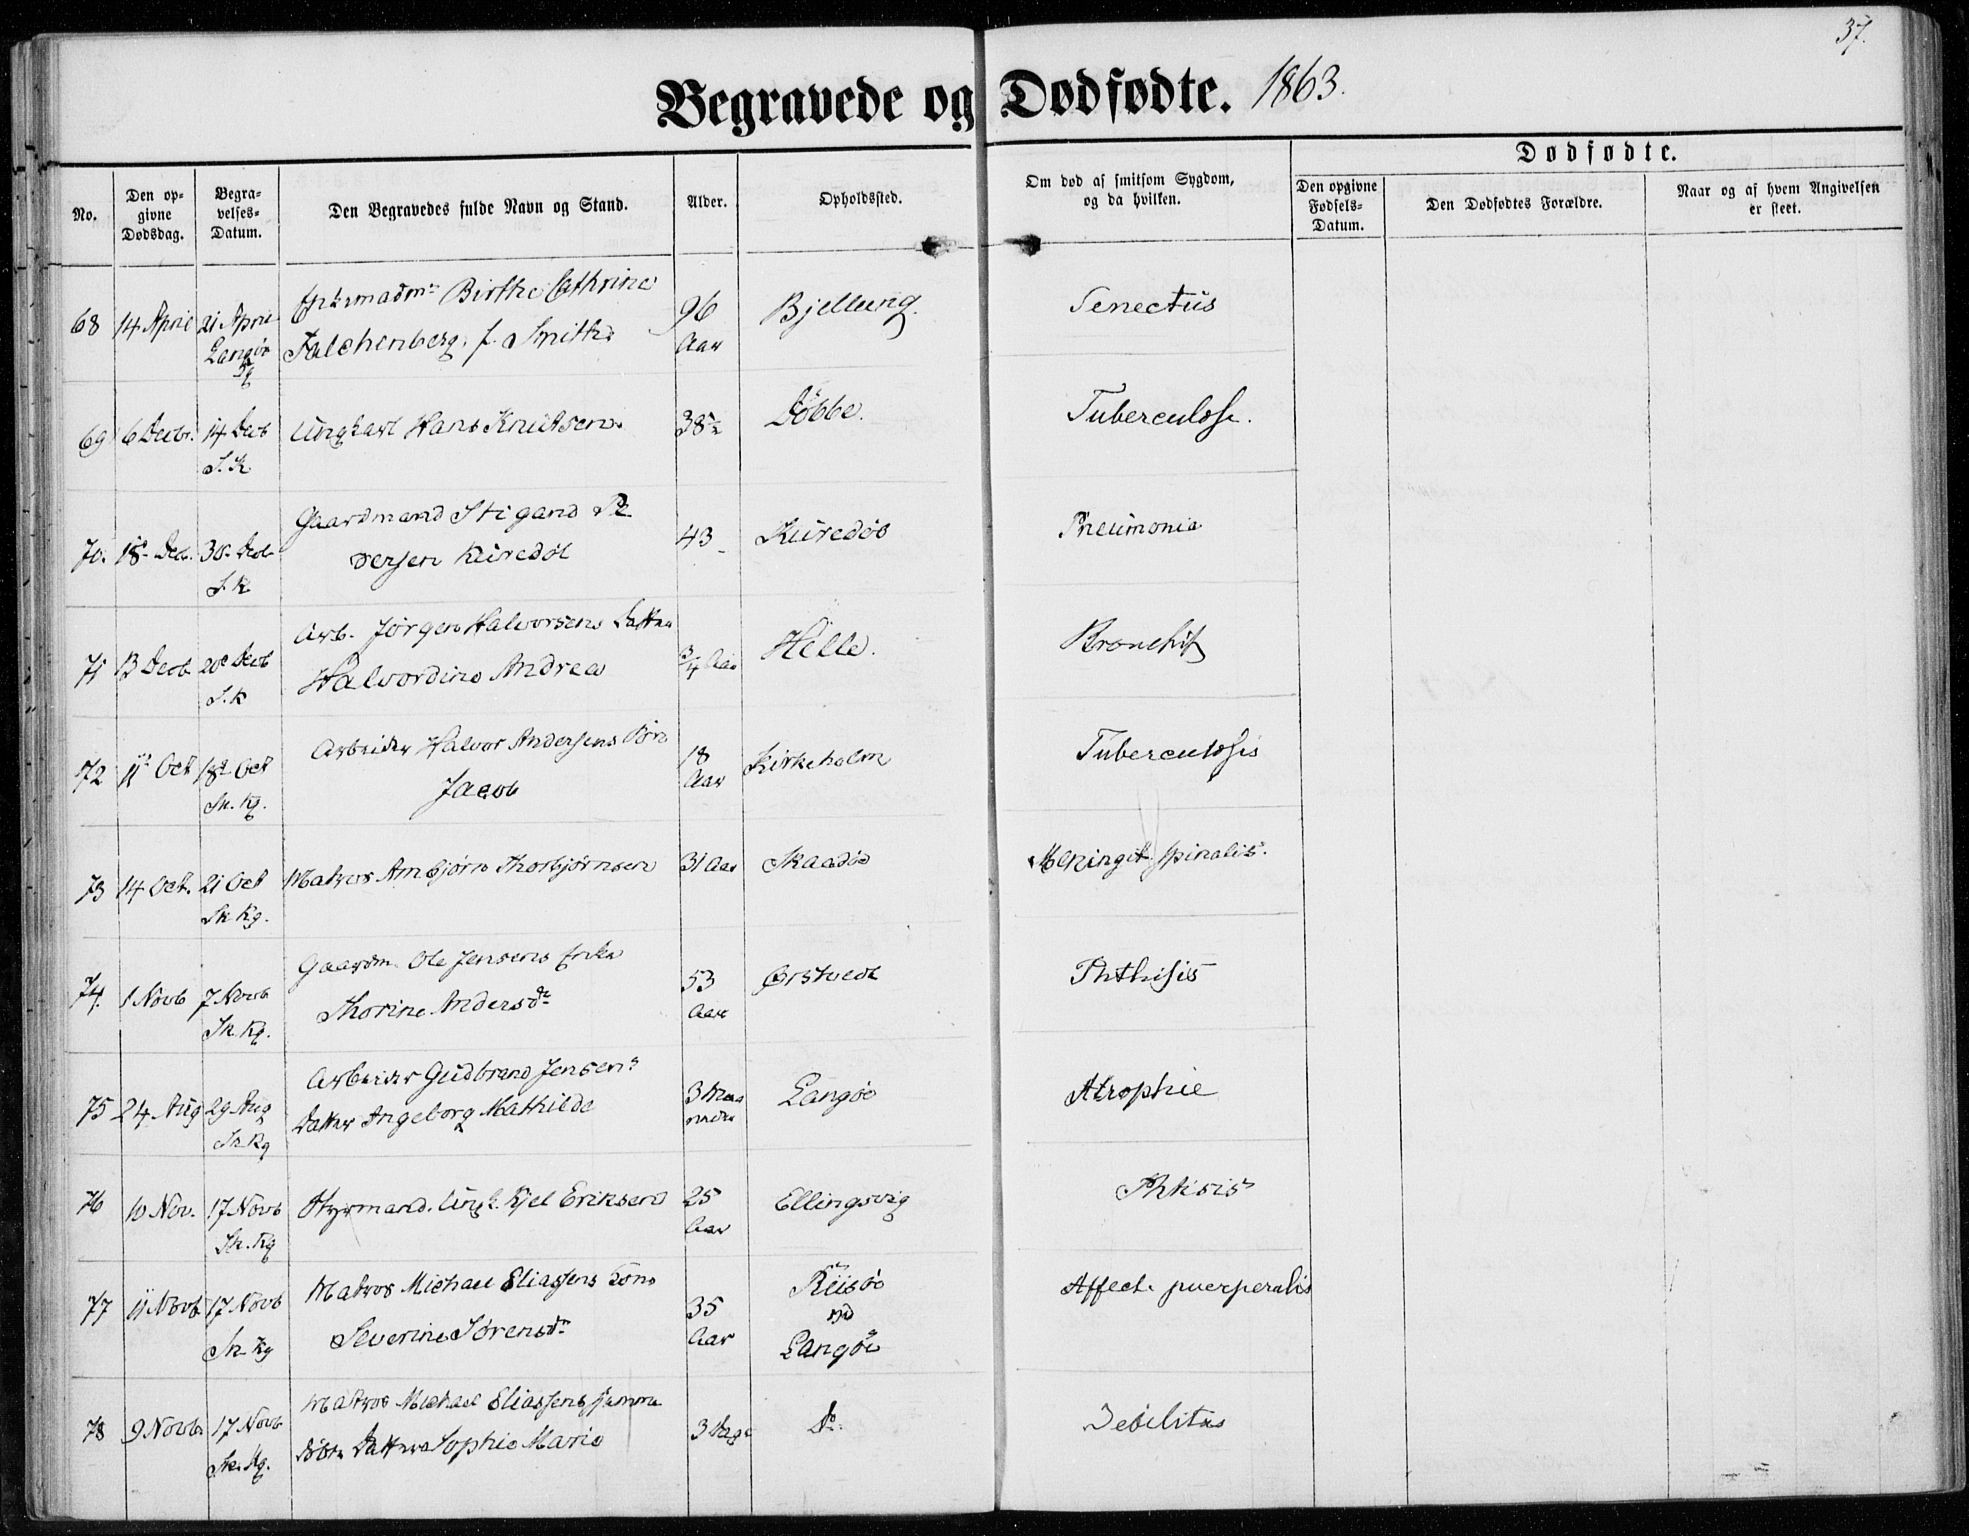 37.
Begravede og Dødfødte. 1863.
No.
Den op-
givne
Dødsdag.
Begra-
velses-
Datum.
Den Begravedes fulde Navn og Stand.
Alder.
Opholdssted.
Om død af smitsom Sygdom,
og da hvilken.
Dødfødte.
Den opgivne
Fødsels-
Datum.
Den Dødfødtes Forældre.
Naar og af hvem Angivelsen
er skeet.
68 14 April 21 April Birthe Cathrine 96 Bjellung. Senectus
Langøe Falchenberg. f. Smith Aar
69 6 Decbr. 14 Decb Ungkarl Hans Knutsen 38 Døbbe. Tuberculose.
S. K
Gaardmand Stigand Pe
70. 18 Decb. 30 Decb dersen Kuredøl 43 Kuredøl Pneumonia
S. K
Arb. Jørgen Halvorsens Datter
71 13 Decb 20 Decb Halvordine Andrea 3/4 Aar Helle. Bronchit
S. K
72 11 Oct 18 Oct Arbeider Halvor Andersens Søn 18 Kirkeholm Tuberculosis
Sk. Kg. Jacob Aar
73 14 Oct. 21 Oct Matros Arnbjørn Thorbjørnsen 31 Aar Skaadø Meningit. spinalis.
Sk. Kg.
Gaardm. Ole Jensens Enke
74. 1 Novb 7 Novb Thorine Andersdr 53 Ørstvedt Phthisis
Sk. Kg. Aar
Arbeider Gudbrand Jensens
75 24 Aug 29 Aug Datter Ingeborg Mathilde 3 Maa Langøe Atrophie
Sk. Kg neder
76 10 Nov. 17 Novb Styrmand. Ungk. Kjel Eriksen 25 Ellingsvig Phtisis
Sk. Kg Aar
77 11 Novb 17 Novb Matros Michael Eliassens Kone 35 Riisøe Affect. puerperalis
Sk. Kg Severine Sørensdr Aar Langøe
Matros Michael Eliassens hjemme
78 9 Novb 17 Novb døbte Datter Sophie Marie 3 Dage Do. Debilitas
Sk. Kg.